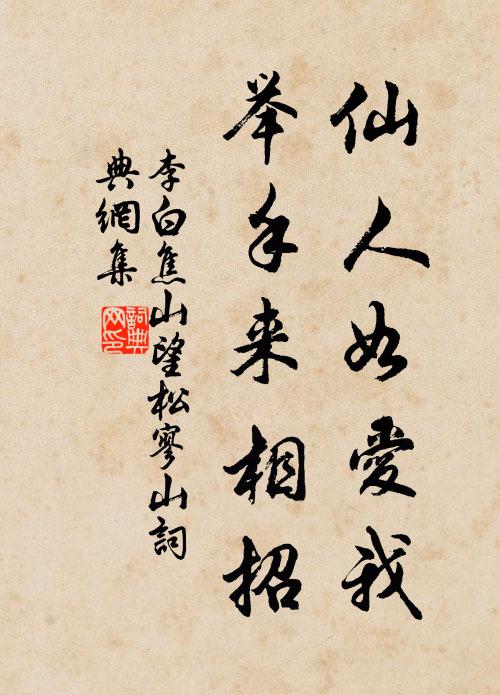 仙人如愛我
举手来相招
李白焦山望松寥山詞
典網集
詞典网印